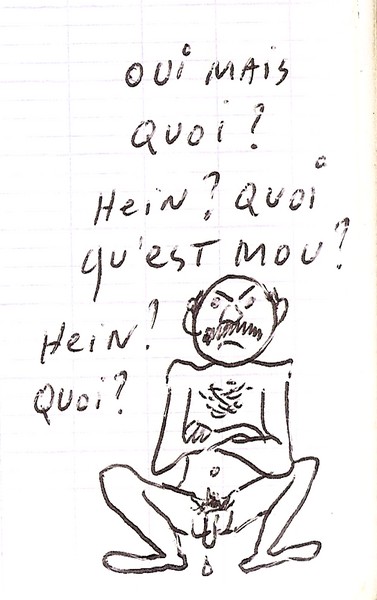 OUi MAiS
QUOi?
HeiN? QUOi
QU'eST MOU?
HeiN?
QUOi?